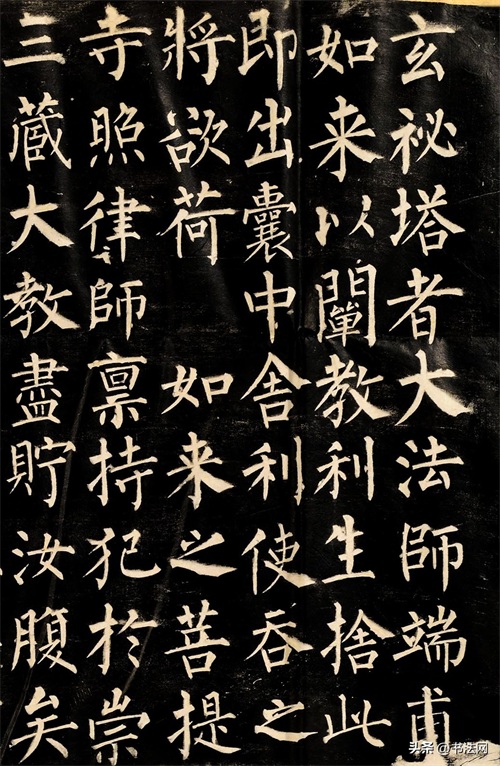 玄祕塔者大法師端甫
如来以闡教利生捨此
即出囊中舎利使吞之
將欲荷如来之菩提
寺照律師禀持犯於崇
三藏大教盡貯汝腹矣
头条@书法网